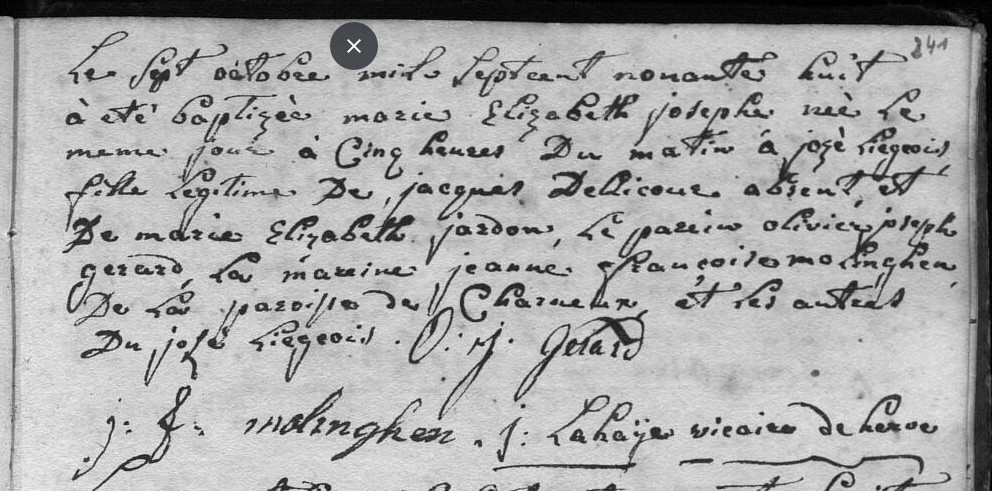 241
Le sept octobre mil septcent nonante huit
à eté baptizèe marie Elizabeth josephe neè Le
meme jour à Cinq heures Du matin á jozè Liegeois,
fille Legitime De jacques Delicour absent, et
De marie Elizabeth jardon, Le parein olivier joseph
gerard, La mareine jeanne françoise molinghen,
De La paroisse de Charneux, et Les autres
Du josè Liegeois. O: j: Gerard
j: f: molinghen. j: Lahaÿe vicaire de herve